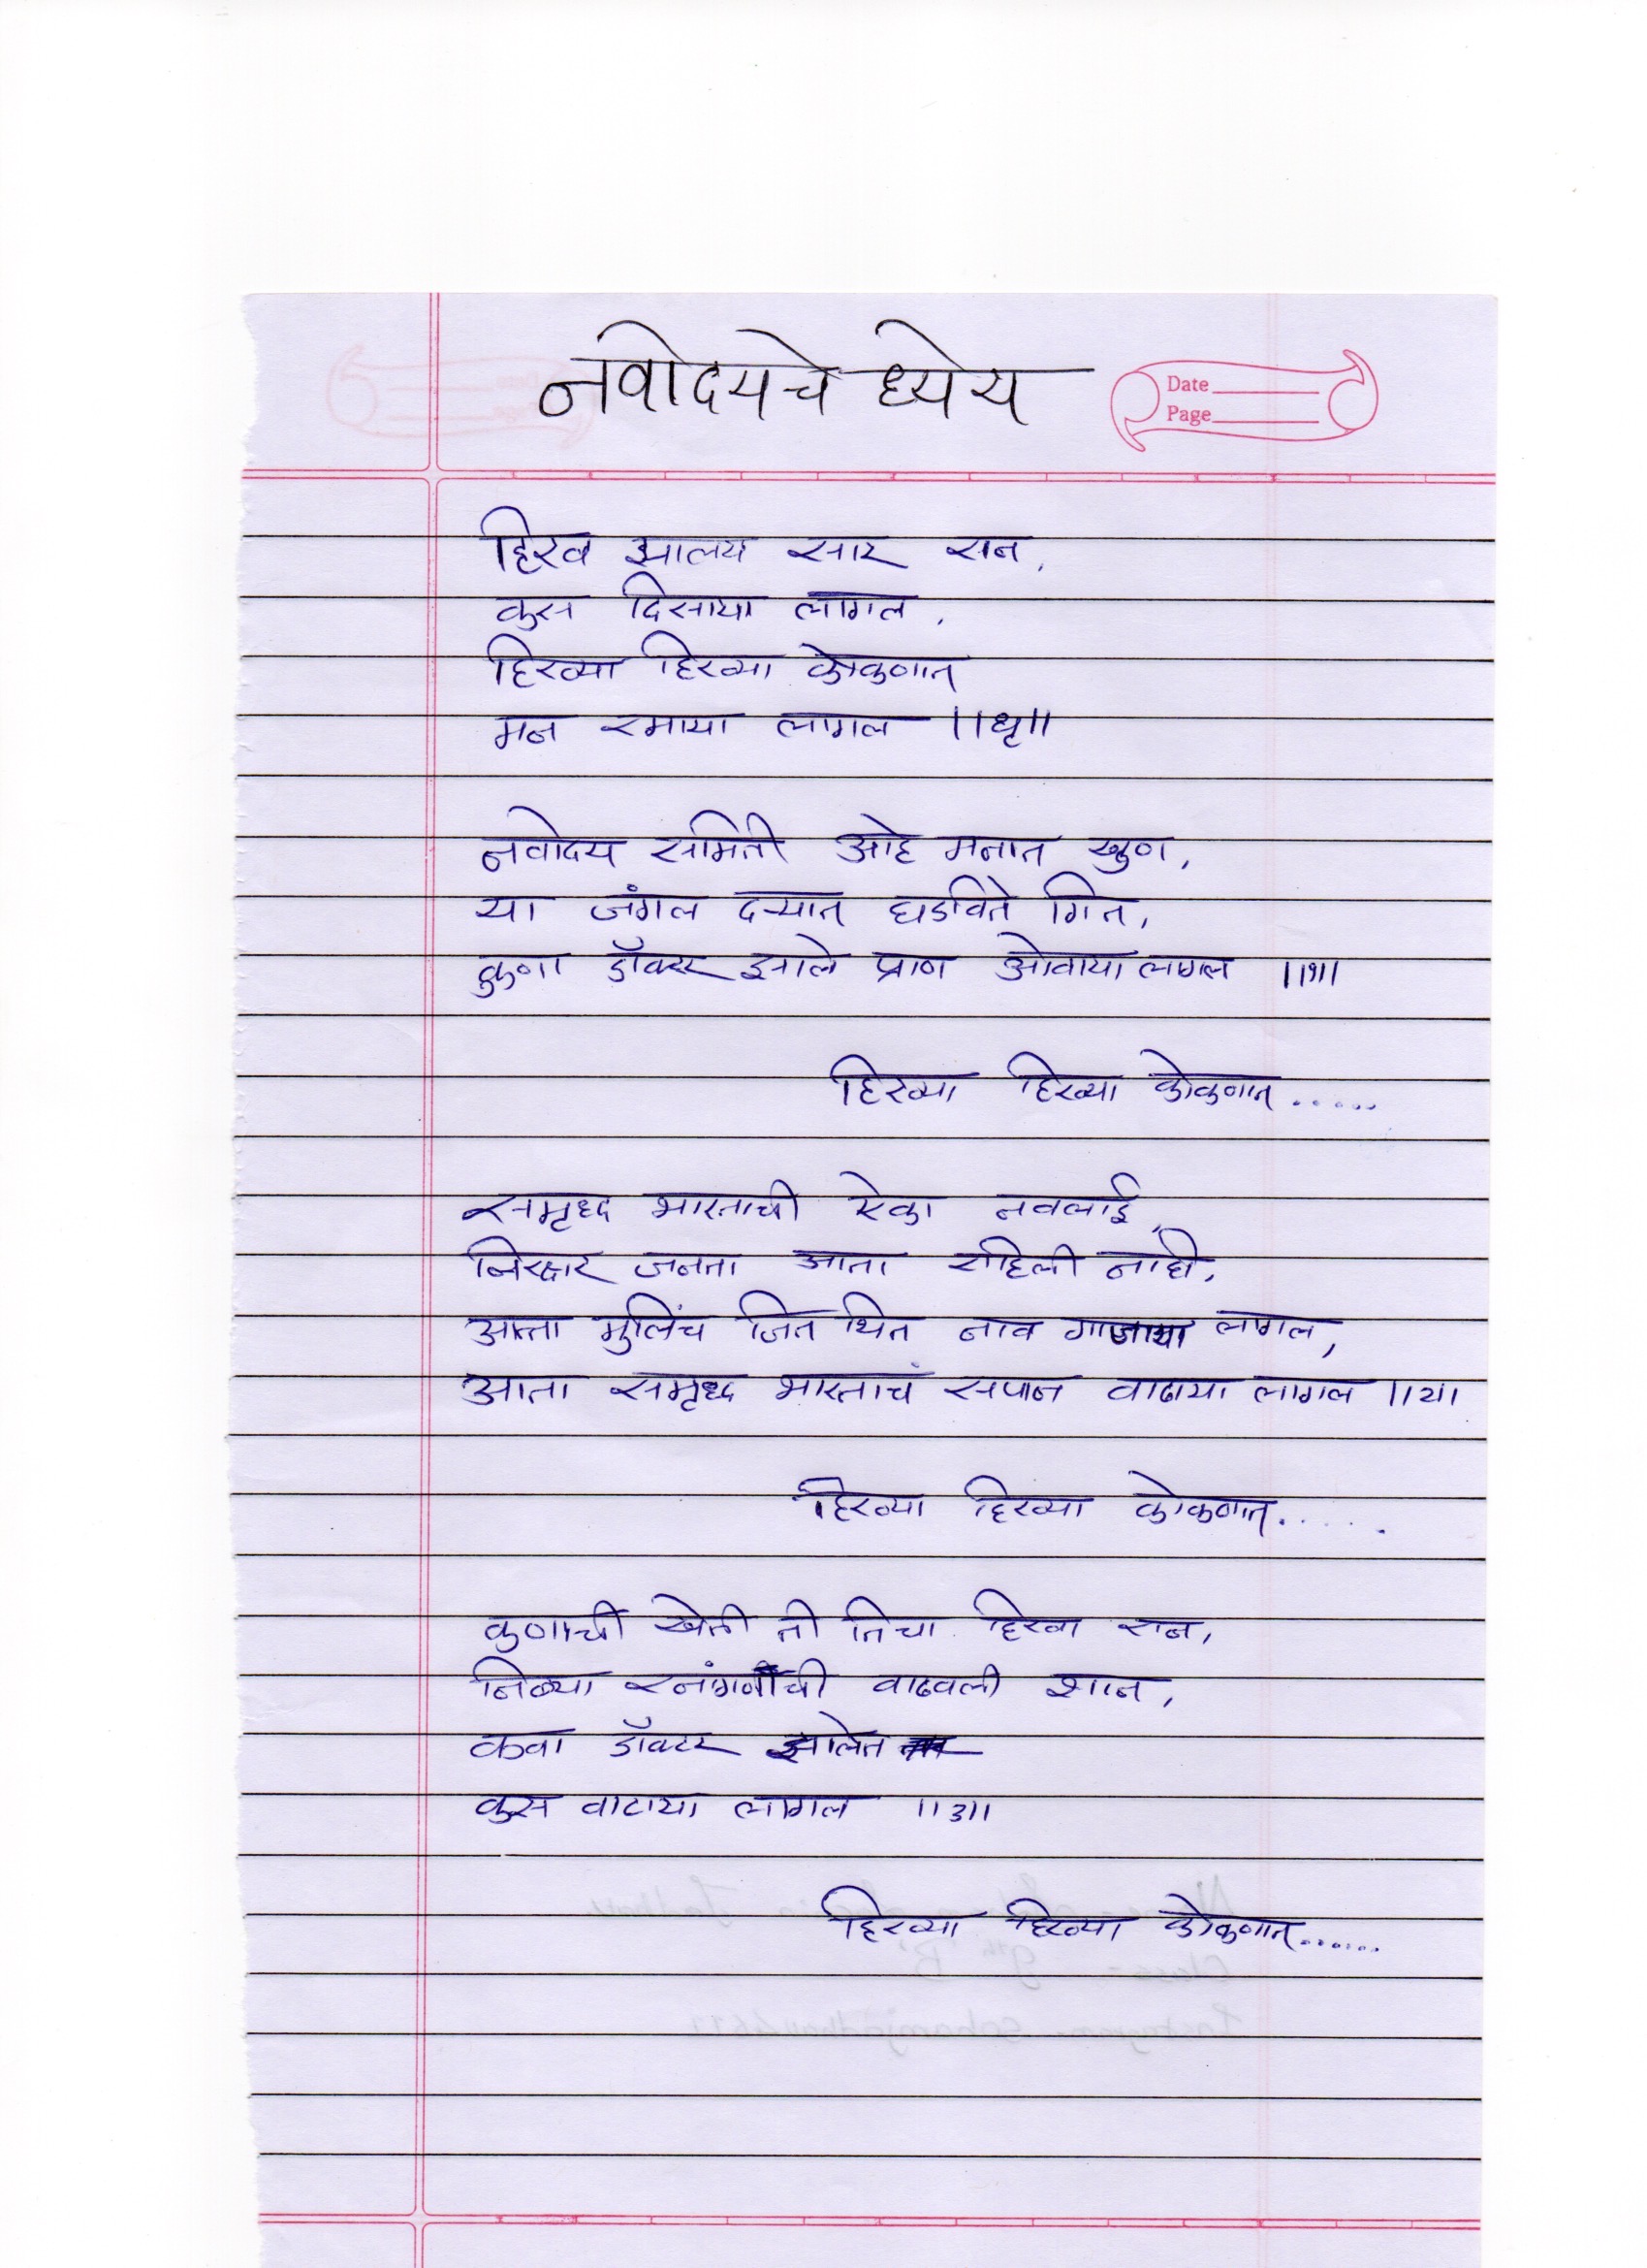 नवोदयचे ध्येय
Date
Page
हिरव झालय सार रान,
कुस दिसाया लागल,
हिरव्या हिरव्या कोकणात
मन रमाया लागल ||धृ||
नवोदय समिती आहे मनात खुण,
या जंगल दऱ्यात घडविते गित,
कुणा डॉक्टर झाले प्राण ओवाया लागल ||१||
हिरव्या हिरव्या कोकणात......
समृध्द भारताची ऐका नवलाई,
निरक्षर जनता आता राहिली नाही,
आता मुलिंच जित थित नाव गाजाया लागल,
आता समृध्द भारताचं सपान वाढाया लागल ||२||
हिरव्या हिरव्या कोकणात......
कुणाची खेती ती तिचा हिरवा रान,
निळ्या वाढवली शान,
कवा डॉक्टर झालेत
कुस वाटाया लागल ||३||
हिरव्या हिरव्या कोकणात......